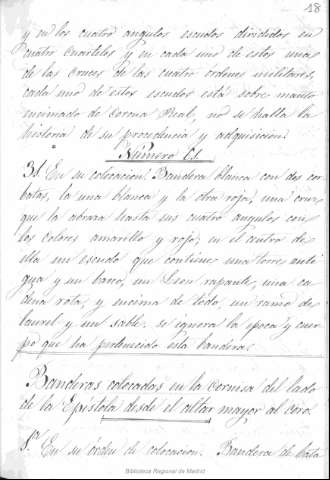 18
y en los cuatro angulos escudos divididos en
cuatro cuarteles y en cada uno de estos unas
de las cruces de las cuatro órdenes militares,
cada uno de estos escudos está sobre manto
encimado de corona Real, no se halla la
historia de su procedencia y adquisicion.
Número
31. En su colocacion. Bandera blanca con dos cor-
batas, la una blanca y la otra roja, una cruz
que la abraza hasta sus cuatro angulos con
los colores amarillo y rojo, en el centro de
ella un escudo que contiene una torre anti
gua y un barco, un Leon rapante, una ca
dena rota, y encima de todo, un ramo de
laurel y un sable. se ignora la epoca y cuer-
po que ha pertenecido esta bandera.
Banderas colocadas en la cornisa del lado
de la Epístola desde el altar mayor al coro.
1ª En su órden de colocacion. Bandera de bata
Biblioteca Regional de Madrid